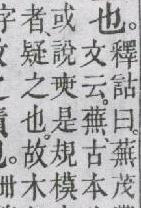 也。
釋詁曰。蕪茂豐
文云。蕪、古本
或說是規模
者、疑之也。故木
字